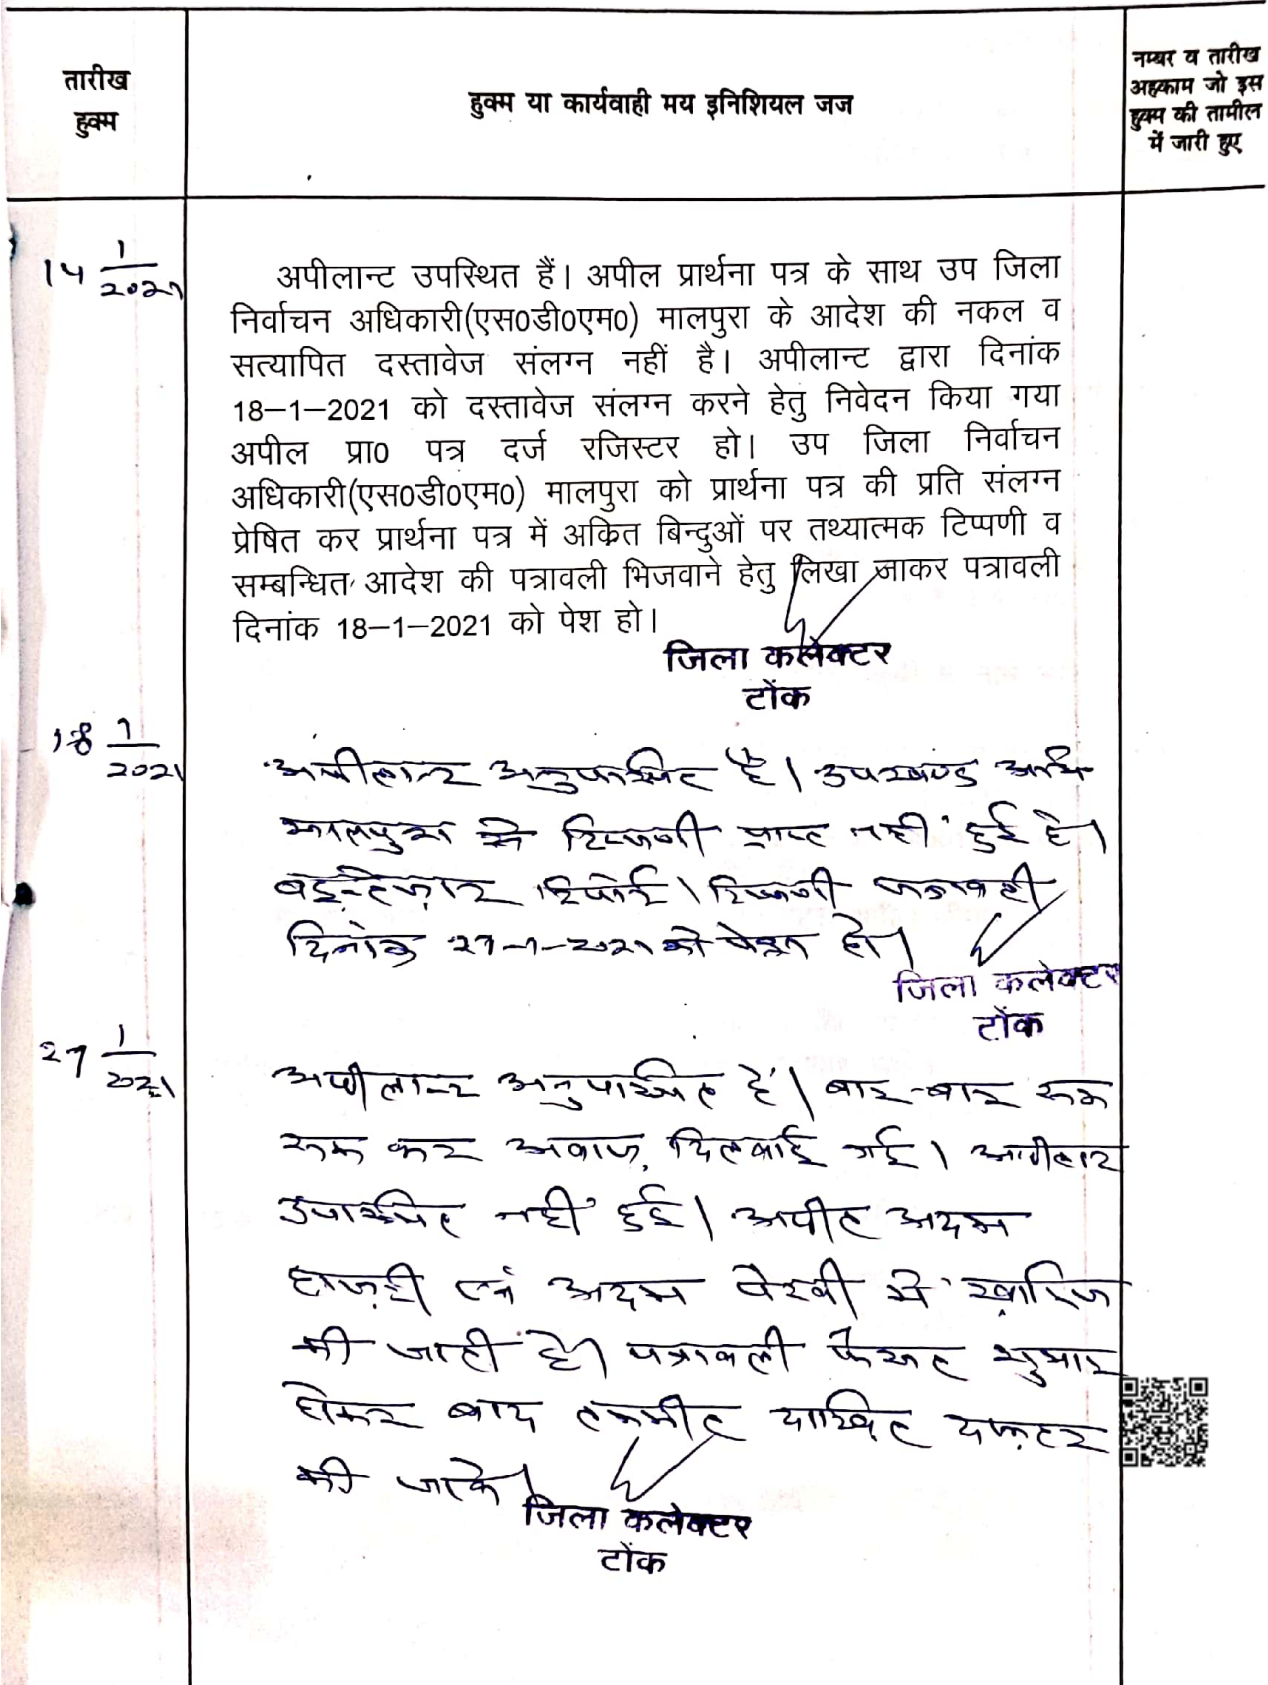 तारीख
हुक्म
हुक्म या कार्यवाही मय इनिशियल जज
नम्बर व तारीख
अहकाम जो इस
हुक्म की तामील
में जारी हुए
14 1/2021
अपीलान्ट उपस्थित हैं। अपील प्रार्थना पत्र के साथ उप जिला
निर्वाचन अधिकारी(एस0डी0एम0) मालपुरा के आदेश की नकल व
सत्यापित दस्तावेज संलग्न नहीं है। अपीलान्ट द्वारा दिनांक
18–1–2021 को दस्तावेज संलग्न करने हेतु निवेदन किया गया
अपील प्रा0 पत्र दर्ज रजिस्टर हो। उप जिला निर्वाचन
अधिकारी(एस0डी0एम0) मालपुरा को प्रार्थना पत्र की प्रति संलग्न
प्रेषित कर प्रार्थना पत्र में अकित बिन्दुओं पर तथ्यात्मक टिप्पणी व
सम्बन्धित आदेश की पत्रावली भिजवाने हेतु लिखा जाकर पत्रावली
दिनांक 18–1–2021 को पेश हो।
जिला कलेक्टर
टोंक
18 1/2021
अपीलान्ट अनुपस्थित है। उपखण्ड अधि
मालपुरा से टिप्पणी प्राप्त नहीं हुई है।
बइन्तेज़ार रिपोर्ट। टिप्पणी पत्रावली
दिनांक 27-1-2021 को पेश हो।
जिला कलेक्टर
टोंक
27 1/2021
अपीलान्ट अनुपस्थित है। बार-बार रूक
रूक कर अवाज़ दिलवाई गई। अपीलांट
उपस्थित नहीं हुई। अपील अदम
हाज़री एवं अदम पैरवी में ख़ारिज
की जाती है। पत्रावली फैसल शुमार
होकर बाद तकमील दाखिल दफ़्तर
की जावे।
जिला कलेक्टर
टोंक